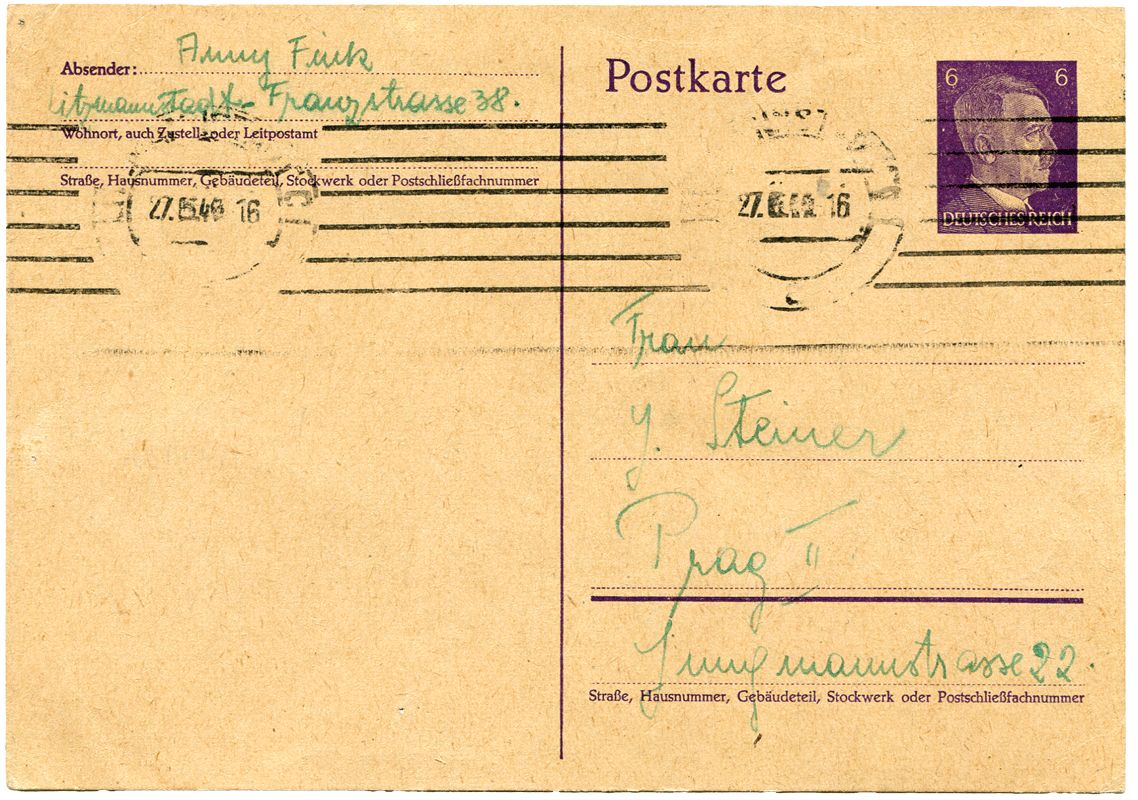 Absender: Anny Fink
Litzmannstadt- Franzstrasse 38.
Wohnort, auch Zustell- oder Leitpostamt
Straße, Hausnummer, Gebäudeteil, Stockwerk oder Postschließfachnummer
Postkarte
6 6
DEUTSCHES REICH
16
16
Frau
J. Steiner
Prag II
Jungmannstrasse 22.
Straße, Hausnummer, Gebäudeteil, Stockwerk oder Postschließfachnummer